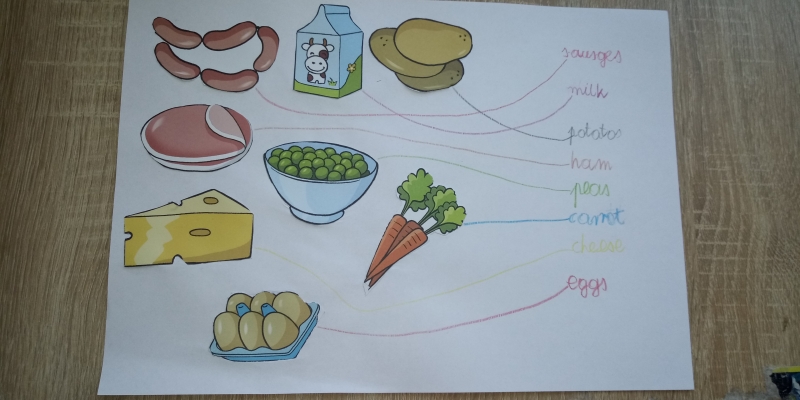 sausges
milk
potatos
ham
peas
carrot
cheese
eggs